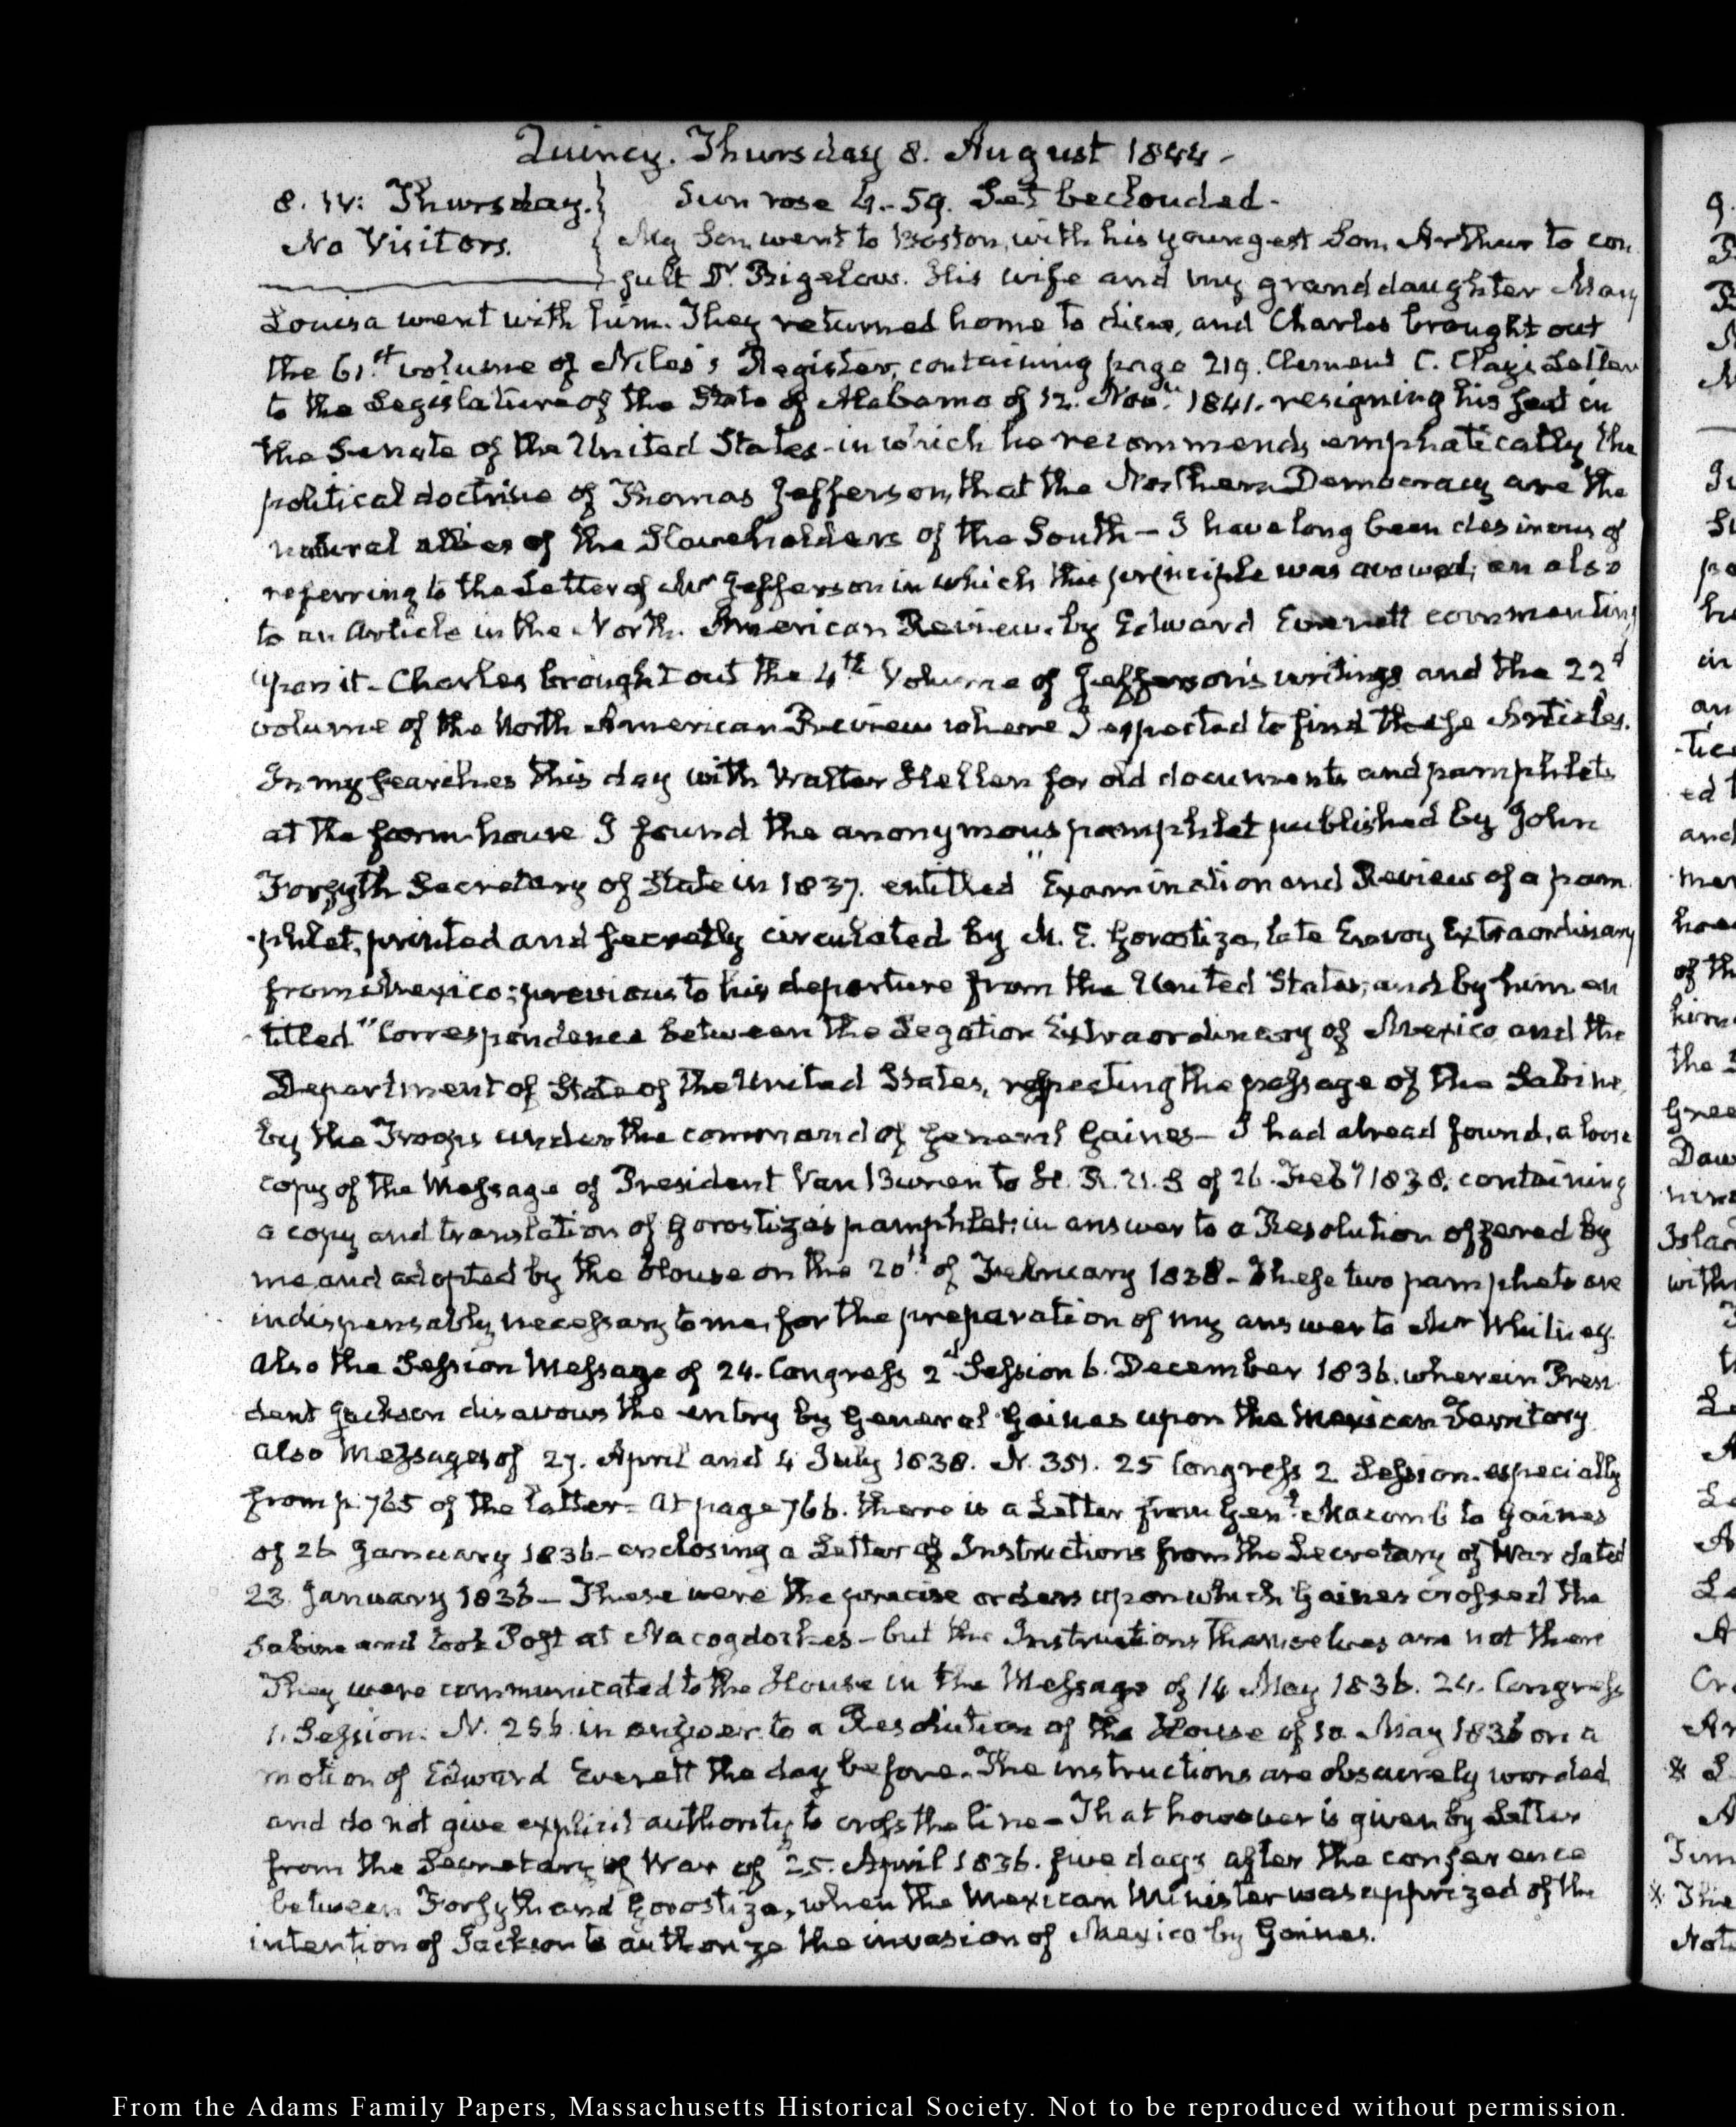 Quincy. Thursday 8. August 1844.
8. IV: Thursday. Sun rose 4.-59. Set beclouded.
No Visitors. My Son, went to Boston, with his youngest Son, Arthur to con
sult Dr. Bigelow. His wife and my granddaughter Mary
Louisa went with him. They returned home to dine, and Charles brought out
the 61.st volume of Niles's Register, containing page 219. Clement C. Clay's Letter
to the Legislature of the State of Alabama of 12. Novr. 1841. resigning his seat in
the Senate of the United States - in which he recommends emphatically the
political doctrine of Thomas Jefferson, that the Northern Democracy are the
natural allies of the Slaveholders of the South - I have long been desirous of
referring to the Letter of Mr Jefferson in which this principle was avowed; an also
to an Article in the North. American Review. by Edward Everett commenting
upon it - Charles brought out the 4th Volume of Jefferson's writings and the 22d
volume of the North American Review where I expected to find these Articles.
In my searches this day with Walter Hellen for old documents and pamphlets
at the farm-house I found the anonymous pamphlet published by John
Forsyth Secretary of State in 1837. entitled "Examination and Review of a pam
phlet, printed and secretly circulated by M. E. Gorostiza, late Envoy Extraordinary
from Mexico; previous to his departure from the United States; and by him en
titled "Correspondence between the Legation Extraordinary of Mexico and the
Department of State of the United States, respecting the passage of the Sabine,
by the Troops under the command of General Gaines - I had alread found, a loose
copy of the Message of President Van Buren to H. R. U. S of 26. Feby 1838. containing
a copy and translation of Gorostiza's pamphlet; in answer to a Resolution offered by
me and adopted by the House on the 20th. of February 1838 - These two pamphets are
indispensably necessary to me, for the preparation of my answer to Mr Whitney.
Also the Session Message of 24. Congress 2d Session 6. December 1836. wherein Presi
dent Jackson disavows the entry by General Gaines upon the Mexican Territory
also Messages of 27. April and 4 July 1838. N. 351. 25 Congress 2. Session. especially
from p. 765 of the latter - At page 766. there is a Letter from Genl. Macomb to Gaines
of 26 January 1836 - enclosing a Letter of Instructions from the Secretary of War dated
23. January 1836 - These were the precise orders upon which Gaines crossed the
Sabine and took Post at Nacogdoches - but the Instructions themselves are not there
They were communicated to the House in the Message of 14 May 1836. 24. Congress
1. Session. N. 256. in answer to a Resolution of the House of 10. May 1836 on a
motion of Edward Everett the day before. The instructions are obscurely worded,
and do not give explicit authority to cross the line - That however is given by Letter
from the Secretary of War of 25. April 1836. five days after the conference
between Forsyth and Gorostiza, when the Mexican Minister was apprized of the
intention of Jackson to authorize the invasion of Mexico by Gaines.
From the Adams Family Papers, Massachusetts Historical Society. Not to be reproduced without permission.